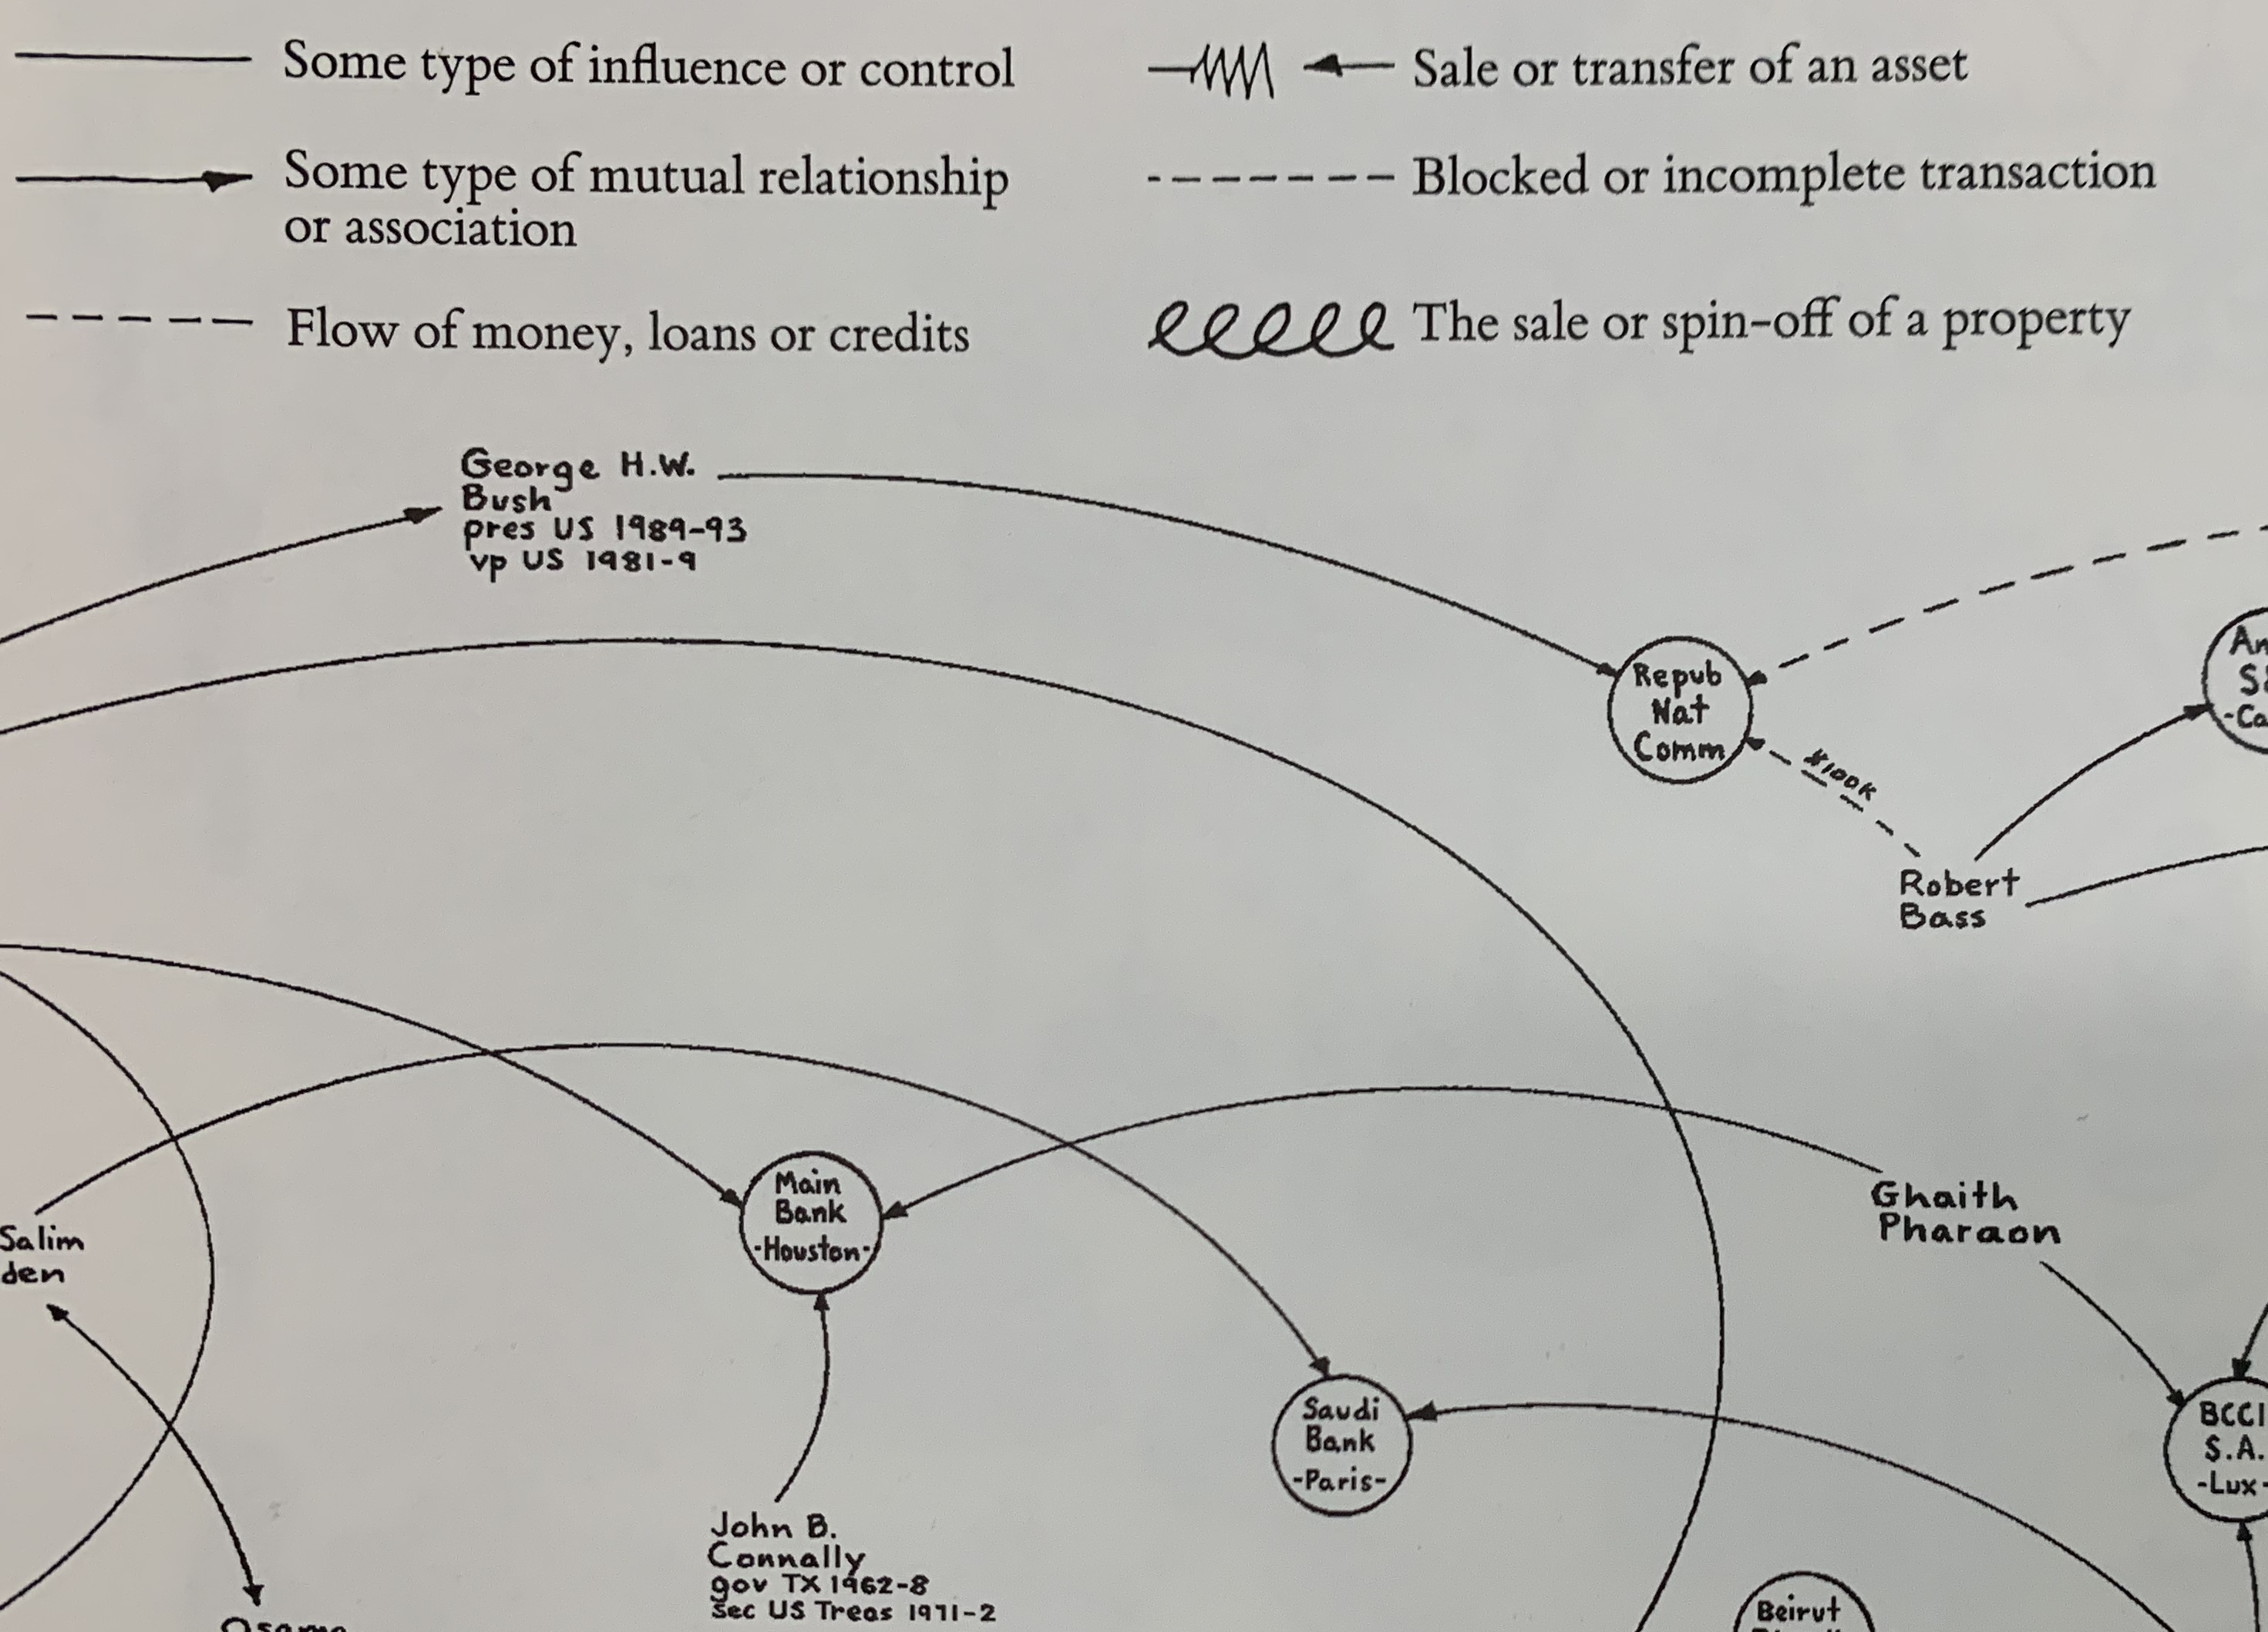 Some type of influence or control
Some type of mutual relationship
or association
Flow of money, loans or credits
Sale or transfer of an asset
Blocked or incomplete transaction
The sale or spin-off of a property
George H.W.
Bush
pres US 1989-93
vp US 1981-9
Repub
Nat
Comm
$100K
Robert
Bass
Salim
den
Main
Bank
-Houston-
Ghaith
Pharaon
Saudi
Bank
-Paris-
BCCI
S.A.
-Lux-
John B.
Connally
gov TX 1962-8
sec US Treas 1971-2
Osama
Beirut